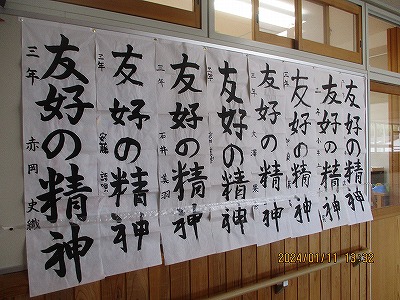 友好の精神
三年 赤岡 史織
友好の精神
三年
友好の精神
三年 石井 美羽
友好の精神
友好の精神
三年 大澤
友好の精神
友好の精神
友好の精神
2024/01/11